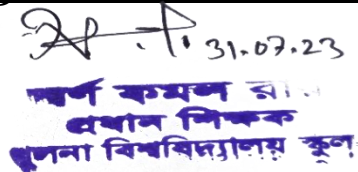 31.07.23
স্বর্ণ কমল রা
প্রধান শিক্ষক
খুলনা বিশ্ববিদ্যালয় স্কুল